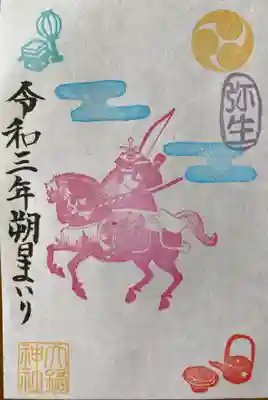 弥生
令和三年朔日まいり
神社